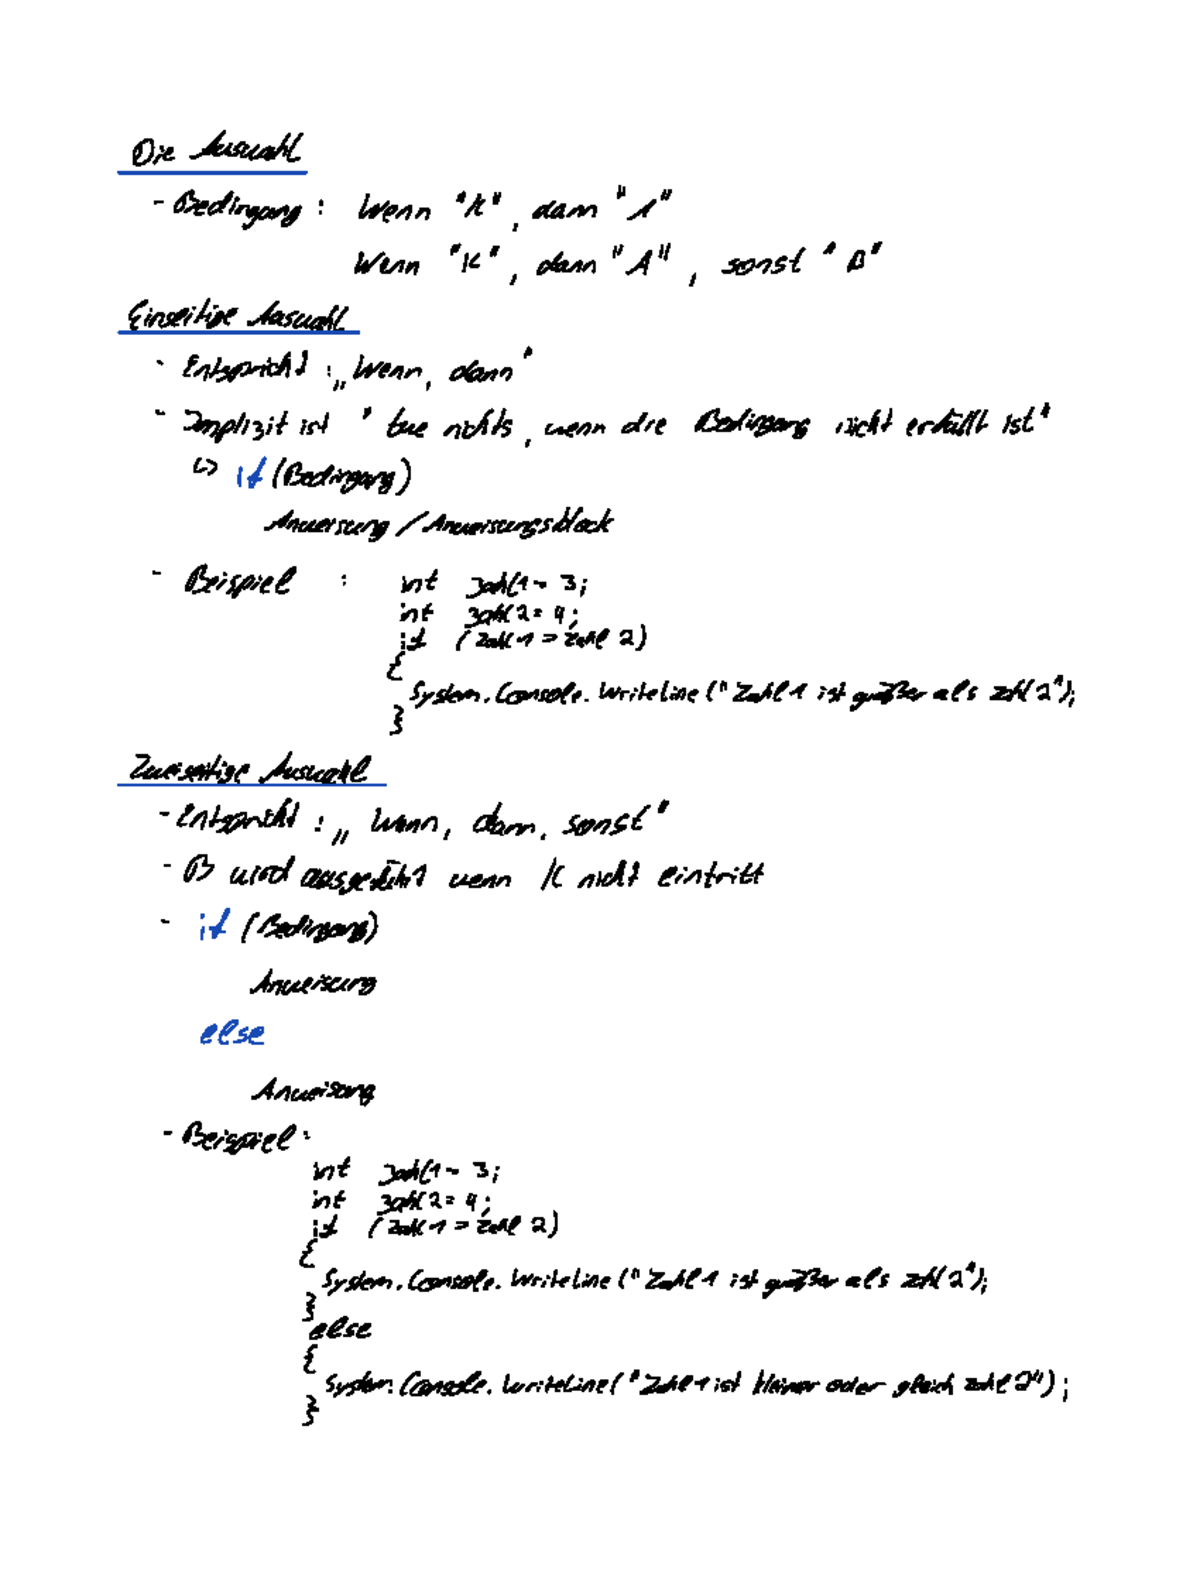 Die Auswahl
- Bedingung : Wenn "K", dann "A"
Wenn "K", dann "A", sonst "B"
Einseitige Auswahl
- Entspricht : „Wenn, dann"
- Implizit ist "tue nichts, wenn die Bedingung nicht erfüllt ist"
↳ if (Bedingung)
Anweisung / Anweisungsblock
- Beispiel : int Zahl1 = 3;
int Zahl2 = 4;
if (Zahl1 > Zahl2)
{
System.Console.WriteLine("Zahl1 ist größer als Zahl2");
}
Zweiseitige Auswahl
- Entspricht : „Wenn, dann, sonst"
- B wird ausgeführt wenn K nicht eintritt
- if (Bedingung)
Anweisung
else
Anweisung
- Beispiel :
int Zahl1 = 3;
int Zahl2 = 4;
if (Zahl1 > Zahl2)
{
System.Console.WriteLine("Zahl1 ist größer als Zahl2");
}
else
{
System.Console.WriteLine("Zahl1 ist kleiner oder gleich Zahl2");
}